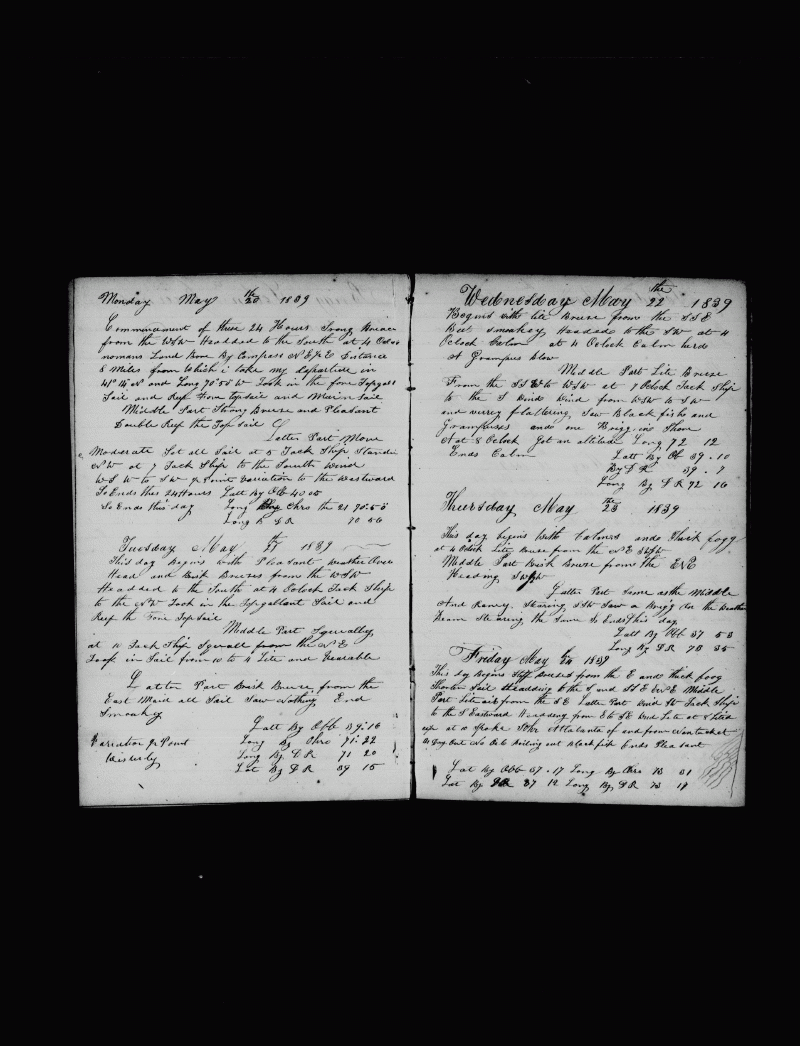 Monday May 20th 1839
Commincment of these 24 Hours Srong Breace
from the WSW Headded to the South at 4 Oclock
nomans Land Bore By Compass N E Distance
8 Miles from Which i take my departure in
41° 15 N and Long 70°55 W Took in the fore Topgall
Sail and Reef Fore topsail and Main Sail
Middle Part Strong Breese and Pleasant
Double Reef the Top Sail
Latter Part More
Moderate Sot all Sail at 5 Tack Ship Standin
NW at 7 Tack Ship to the South Wind
W S W to S W Point Variation to the Westward
So Ends this 24 Hours Latt By Obb 40 05
So Ends this day Long By Chro the 21 70:53
Long D R 70 56
Tuesday May 21 1839
This day Begins With Pleasant Weather Over
Head and Brisk Breezes from the WSW
Headded to the South at 4 Oclock Tack Ship
to the NW Took in the Topgallant Sail and
Reef the Fore Top Sail
Middle Part Squally
at 10 Tack Ship Squall from the N E
Took in Sail from 10 to 4 Lite and
Latter Part Brisk Breese from the
East Maid all Sail Saw Nothing End
Smoaky
Latt By Obb 39:16
Variation Point Long By Chro 71:22
Westerly Long By D R 71 20
Lat By D R 39 15
Wednesday May 22 the 1839
Begins with Lite Breese from the S S E
But smoakey Headed to the SW at 4
Oclock at 4 Oclock Calm herd
A Grampus blow
Middle Part Lite Breese
From the S S W to WSW at 1 Oclock Tack Ship
to the S Winds Wind from WSW to SW
and verrey flattering, Saw Black fish and
Grampuses and one Brigg in Shore
at 8 Oclock Got an altitude Long 72 12
Ends Calm Latt By Ob 39.10
By D R 39.7
Long By D R 72 16
Thursday May 23 the 1839
This day begins With Calms and Thick fogg
at 4 Oclock Lite Breese from the N E
Middle Part Brisk Breese from the ENE
Heading
Latter Part Same as the Middle
And Raney. Stearing, SSW Saw a Brigg on the Weather
Beam Stearing the Same So Ends this day
Latt By Obb 37 53
Long By D R 73 35
Friday May 24 1839
This day Begins Stiff Breeses from the E and thick foog
Shorten Sail Headding to the S and Middle
Part Lite air from the S E Latter Part Wind Tack Ship
to the S Eastward Heading from E to Wind Lite at
up at 10 Spoke Schr Attalanta of and from Nantucket
days Out No Oil Boiling out Blackfish Ends Pleasant
Lat By Obb 37.17 Long By Chro 73 31
Lat By D R 37 12 Long By D R 73 17